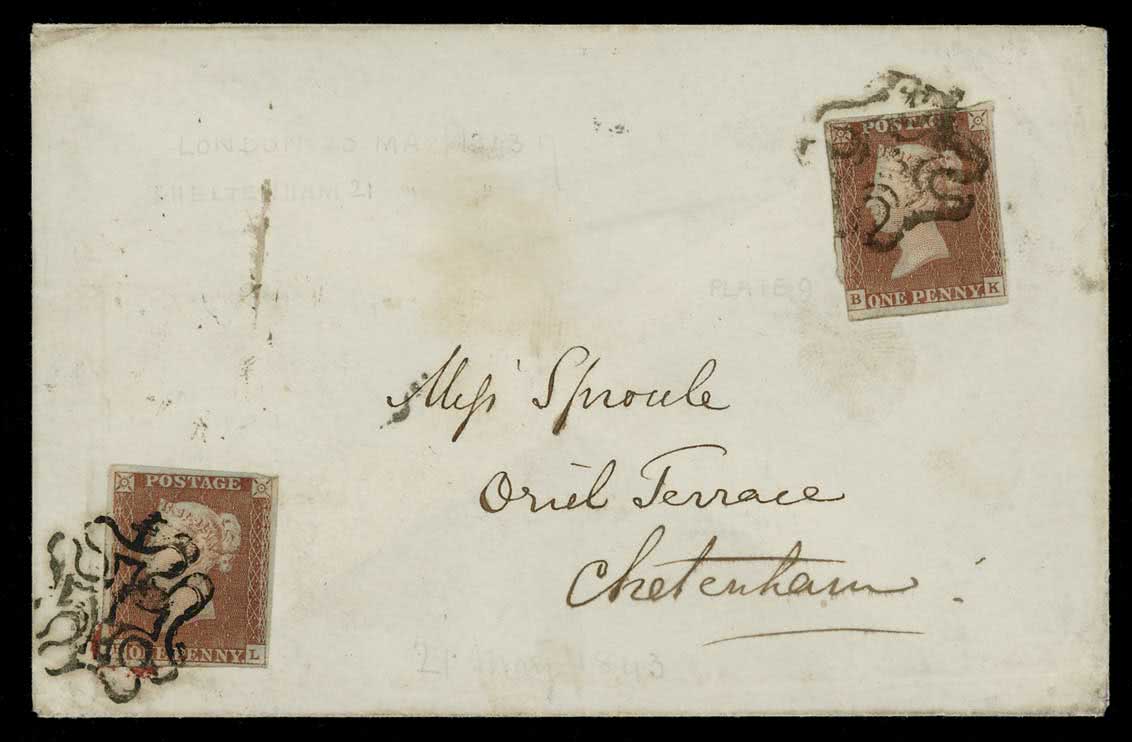 LONDON 20 MAY 1843
CHELTENHAM 21 " "
POSTAGE
PLATE 9
B ONE PENNY K
Miss Sproule
Oriel Terrace
Cheltenham
POSTAGE
ONE PENNY L
21 May 1843